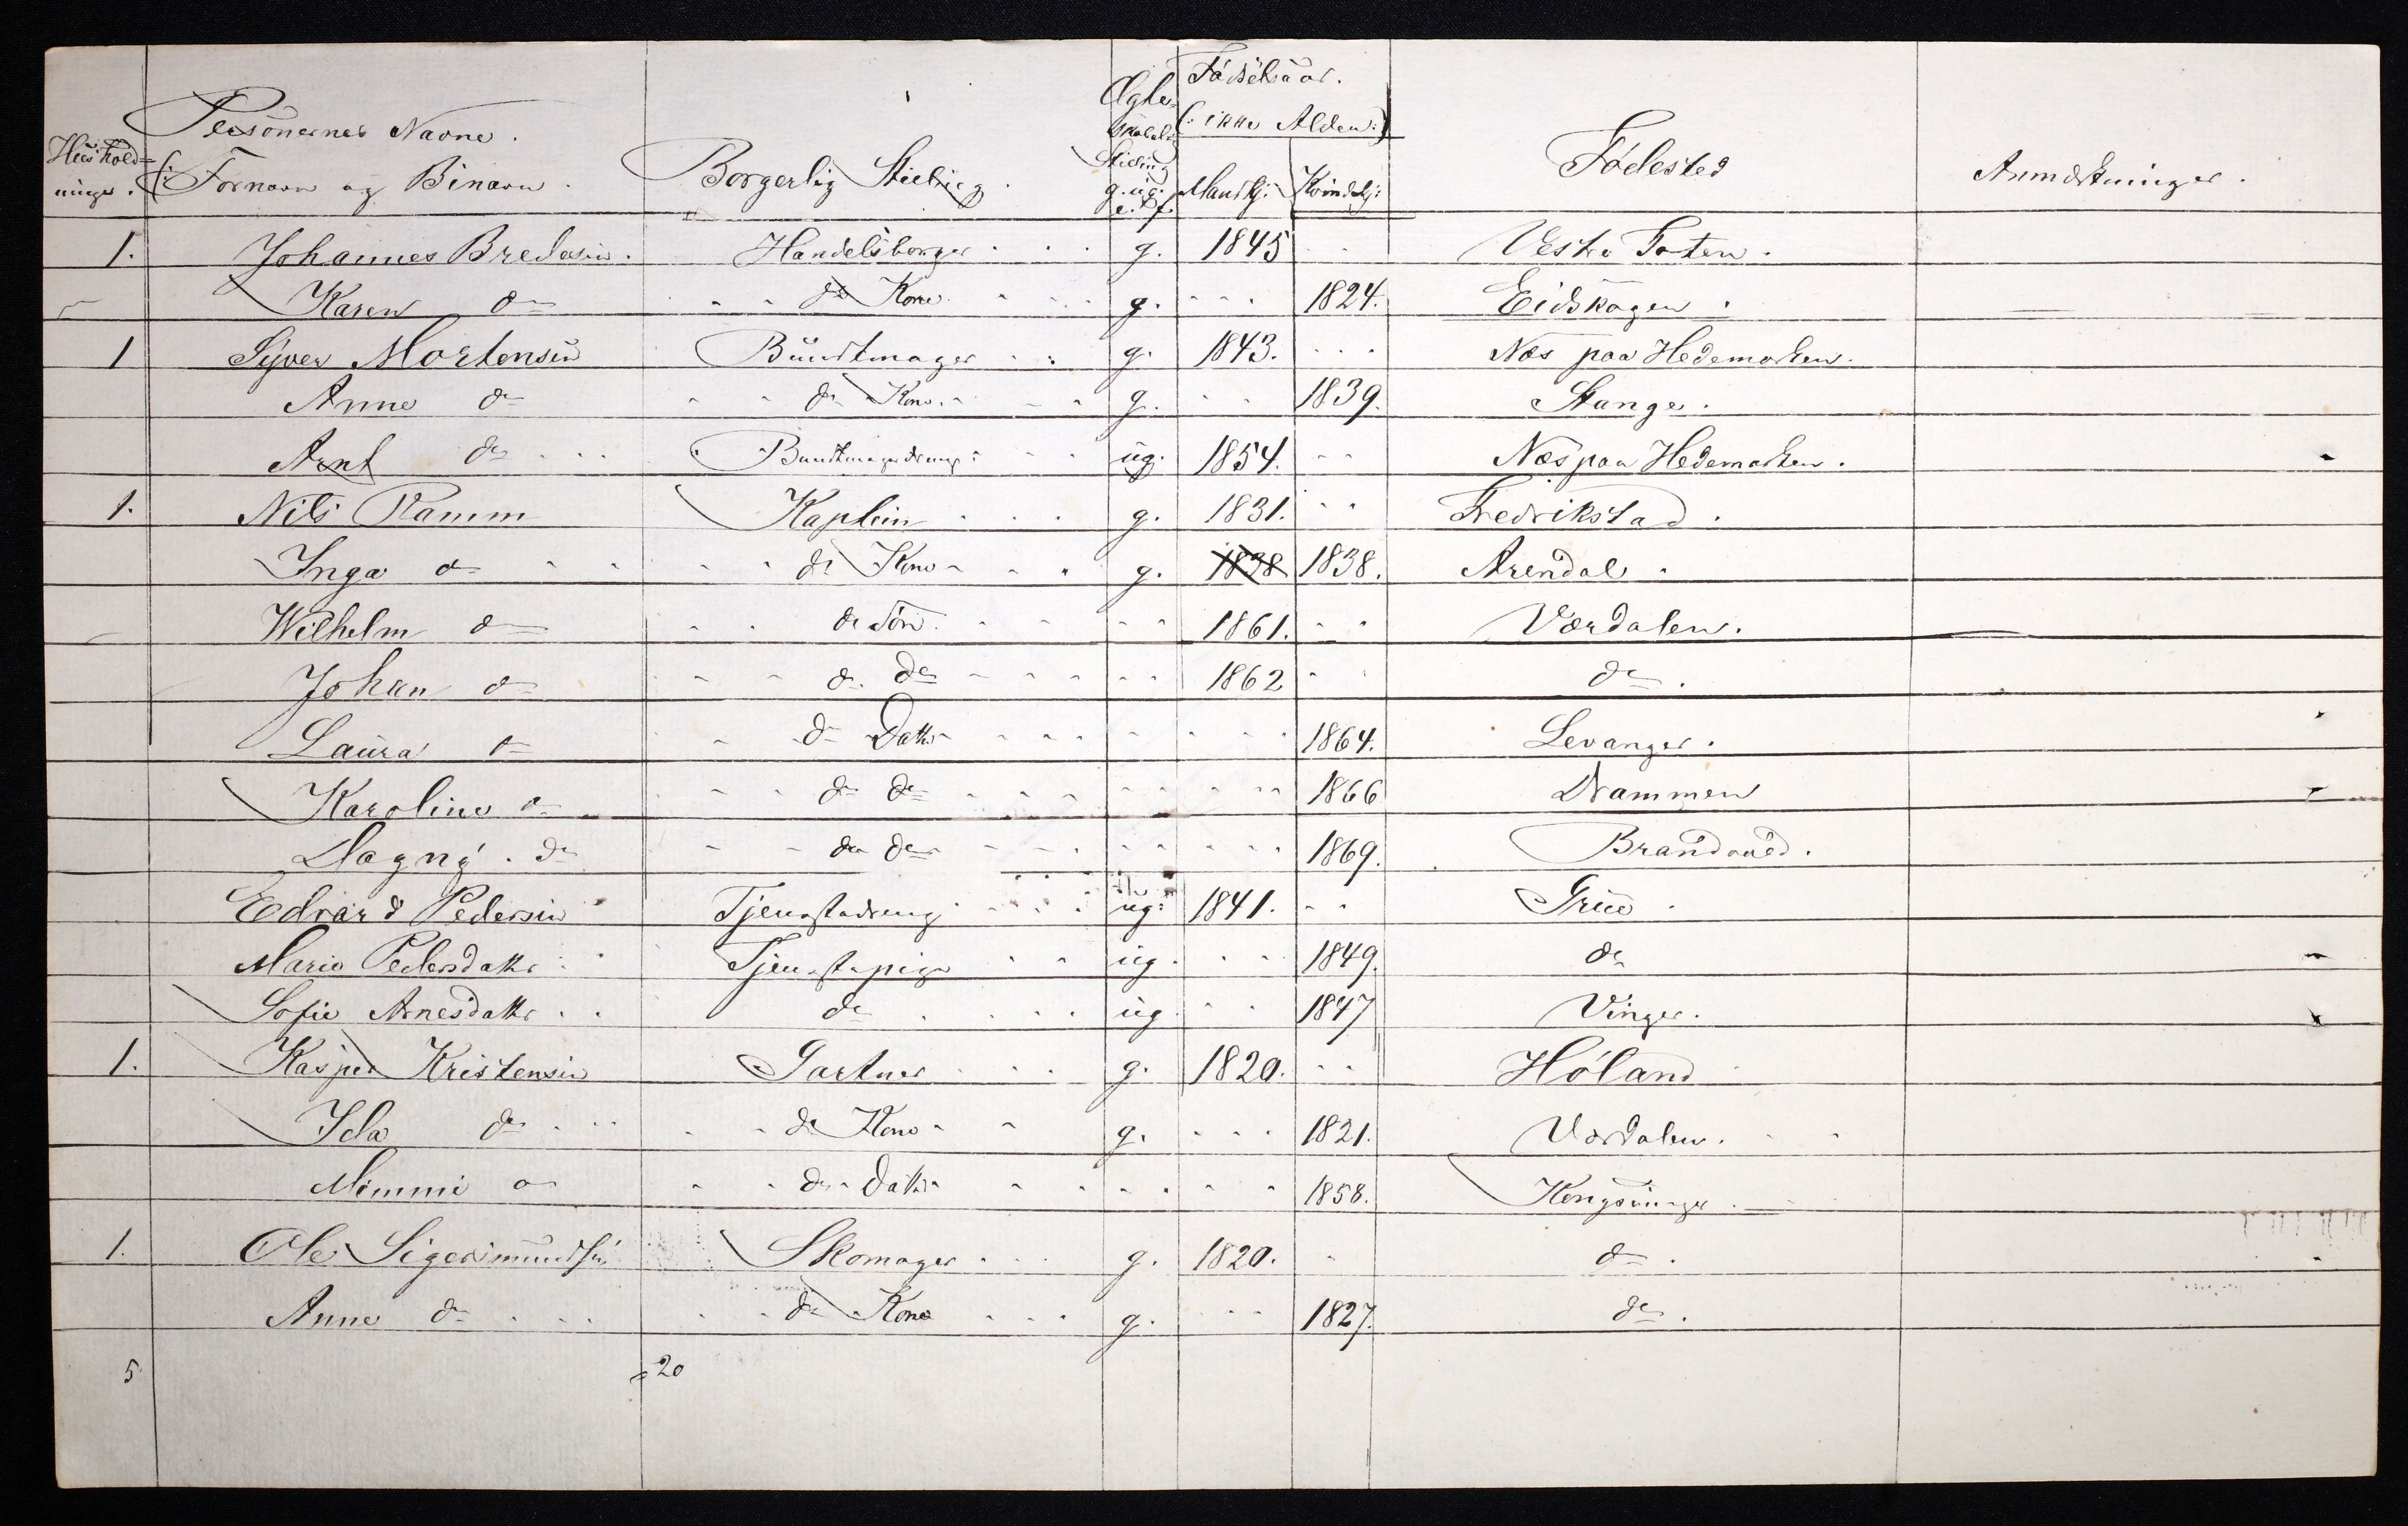 Huushold=
ninger.
Personernes Navne.
(: Fornavn og Binavn.
Borgerlig Stilling.
Ægte-
skabelig
Stilling
g. ug.
e. f.
Fødselsaar.
(: ikke Alder :)
Mandkj: Kvindekj:
Fødested
Anmærkninger.
1. Johannes Bredesen. Handelsborger g. 1845 Vestre Toten.
Karen do do Kone g. 1824. Eidskogen.
1 Syver Mortensen Bundtmager g. 1843. Næs paa Hedemarken.
Anne do do Kone g. 1839. Stange.
Arnt do Bundtmagerdreng ug. 1854. Næs paa Hedemarken.
1. Nils Ramm Kaptein g. 1831. Fredrikstad.
Inga do do Kone g. 1838 1838. Arendal.
Wilhelm do do Søn 1861. Værdalen.
Johan do do do 1862 do.
Laura do do Datter 1864. Levanger.
Karoline do do do 1866 Drammen
Dagny. do do do 1869. Brandvold.
Edvard Pedersen Tjenestedreng ug. 1841. Grue.
Marie Pedersdatter Tjenestepige ug. 1849. do
Sofie Arnesdatter do ug. 1847 Vinger.
1. Kasper Kristensen Gartner g. 1820. Høland
Ida do do Kone g. 1821. Værdalen.
Mimmi do do Datter 1858. Kongsvinger.
1. Ole Sigersmundsen Skomager g. 1820. do.
Anne do do Kone g. 1827. do.
5 = 20